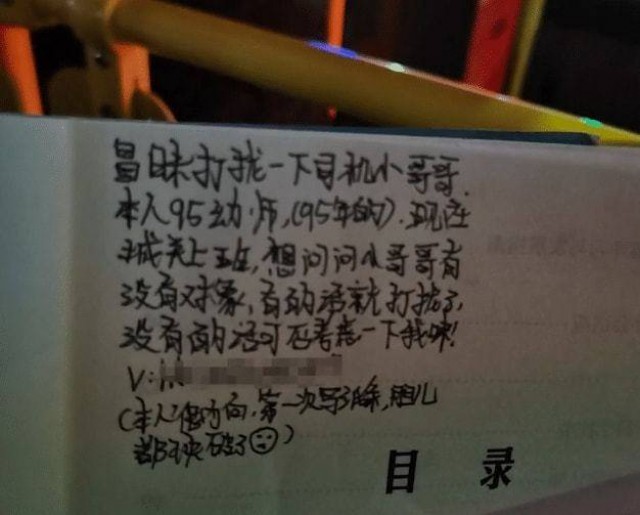 冒昧打扰一下司机小哥哥.
本人95幼师,(95年的).现在
城关上班,想问问小哥哥有
没有对象,有的话就打扰了,
没有的话可否考虑一下我咪!
V:
(本人偏内向,第一次写纸条,胆儿
都快破了☹)
目 录